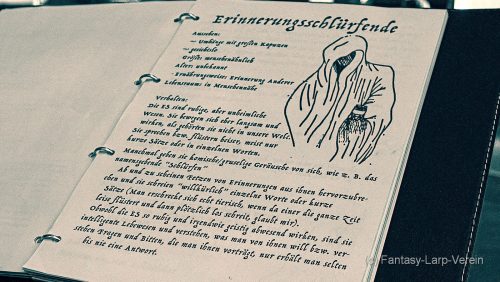 Erinnerungsschlürfende
Aussehen:
– Umhänge mit großen Kapuzen
– gesichtslos
Größe: menschenähnlich
Alter: unbekannt
Ernährungsweise: Erinnerung Anderer
Lebensraum: in Menschennähe
Verhalten:
Die ES sind ruhige, aber unheimliche
Wesen. Sie bewegen sich eher langsam und
wirken, als gehörten sie nicht in unsere Welt.
Sie sprechen bzw. flüstern leise, meist nur
kurze Sätze oder in einzelnen Worten.
Manchmal geben sie komische/gruselige Geräusche von sich, wie z. B. das
namensgebende "Schlürfen"
Ab und zu scheinen Fetzen von Erinnerungen aus ihnen hervorzubre-
chen und sie schreien "willkürlich" einzelne Worte oder kurze
Sätze (Man erschreckt sich echt tierisch, wenn da einer die ganze Zeit
leise flüstert und dann plötzlich los schreit, glaubt mir).
Obwohl die ES so ruhig und irgendwie geistig abwesend wirken, sind sie
intelligente Lebewesen und verstehen, was man von ihnen will bzw. ver-
stehen Fragen und Bitten, die man ihnen vorträgt, nur erhält man selten
bis nie eine Antwort.
(c) Fantasy-Larp-Verein